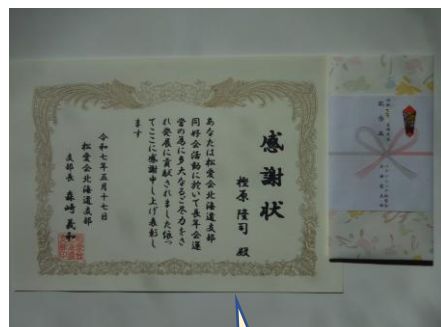 感謝状
樫原隆司 殿
あなたは松愛会北海道支部
同好会活動に於いて長年会運
営の為に多大なるご尽力をさ
れ発展に貢献されました依っ
てここに感謝申し上げ表彰し
ます
令和七年五月十七日
松愛会北海道支部
支部長 森崎義和